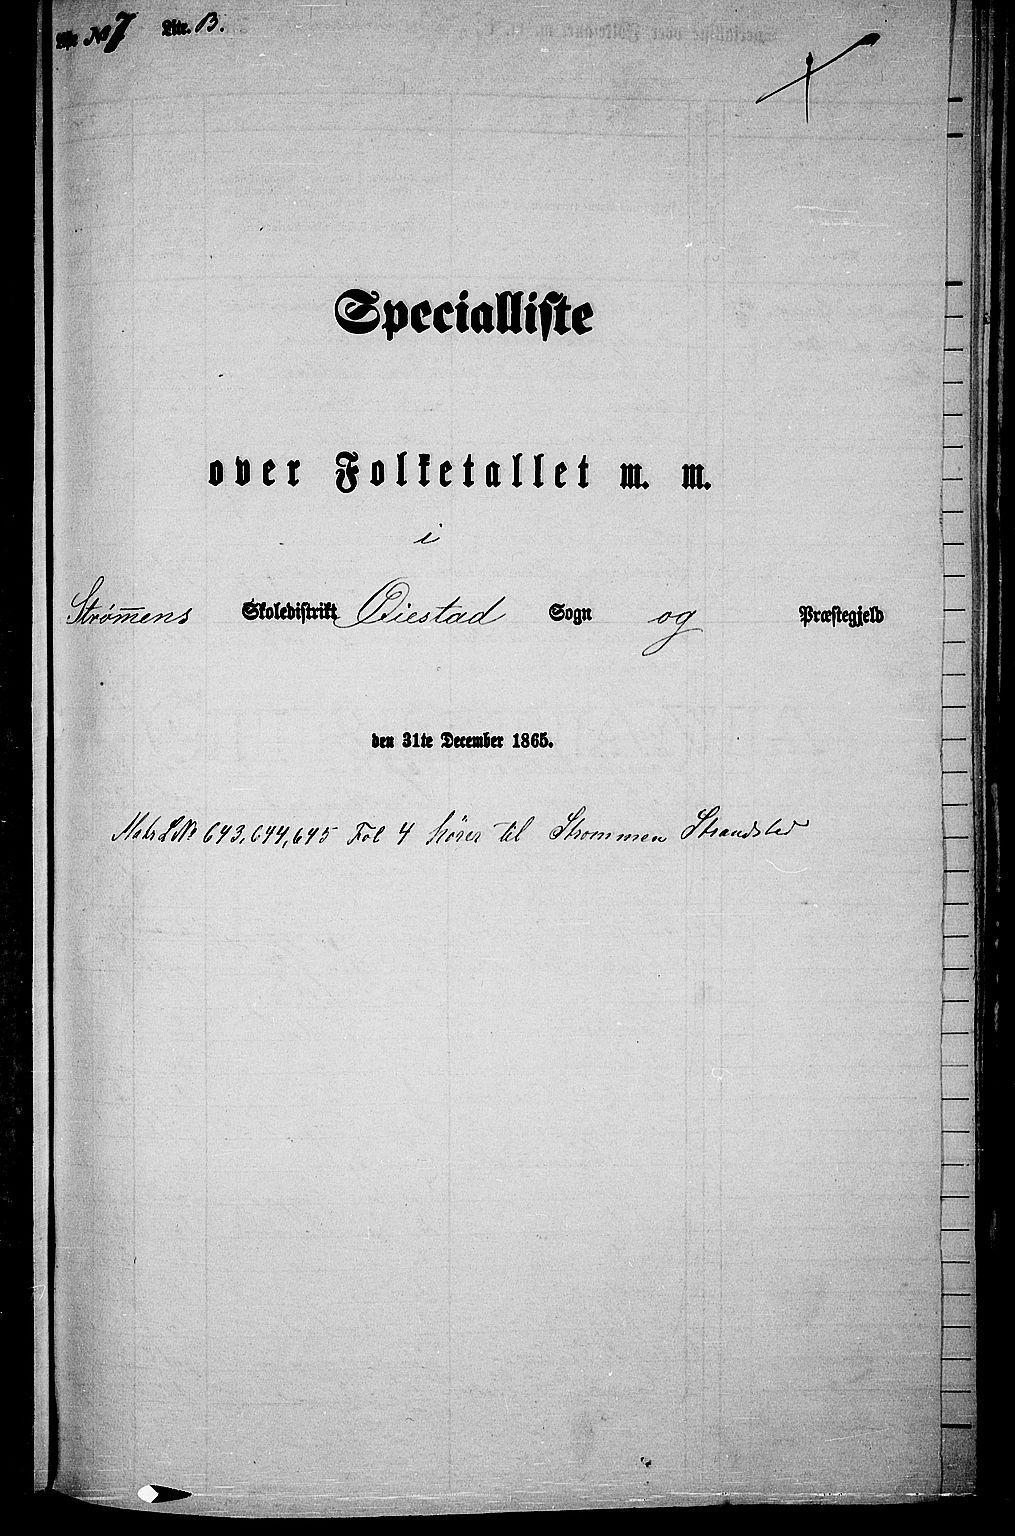 No 7 Litr. B.
Specialliste
over Folketallet m. m.
i
Strømmens Skoledistrikt Øiestad Sogn og Præstegjeld
den 31te December 1865.
Matr L No 643, 644, 645 Fol 4 hører til Strømmen Strandsted